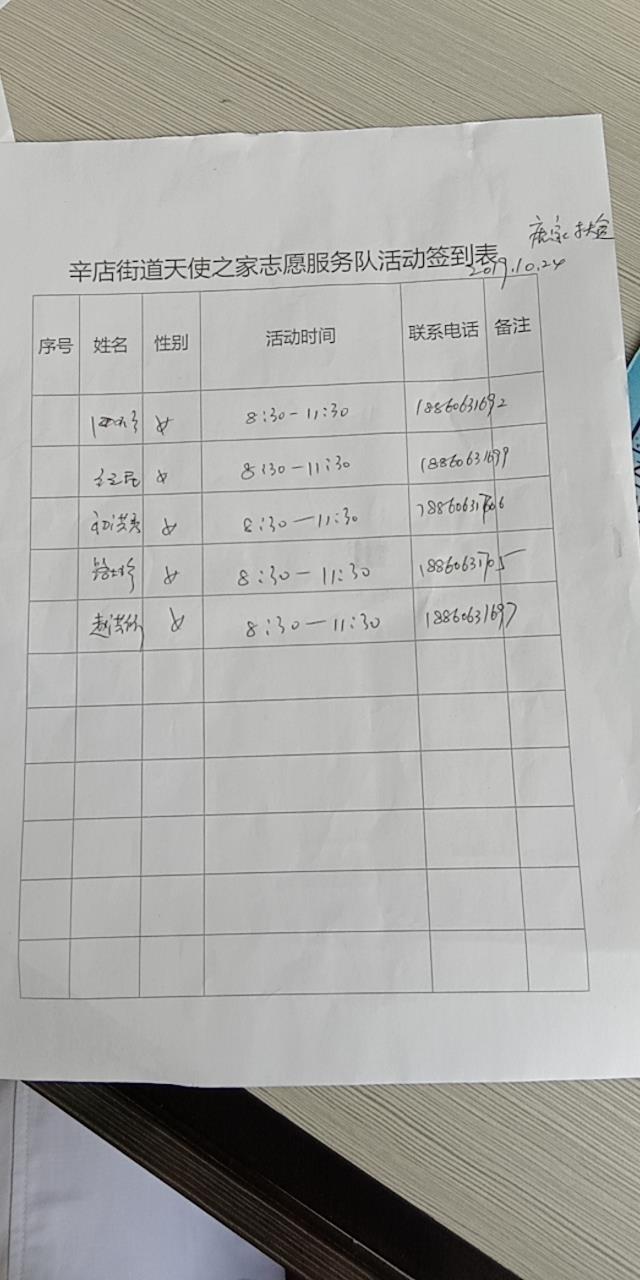 2019.10.24
辛店街道天使之家志愿服务队活动签到表
序号 姓名 性别 活动时间 联系电话 备注
女 8:30-11:30 18860631692
女 8:30-11:30 18860631699
女 8:30-11:30
女 8:30-11:30 18860631705
赵洪 女 8:30-11:30 18860631697